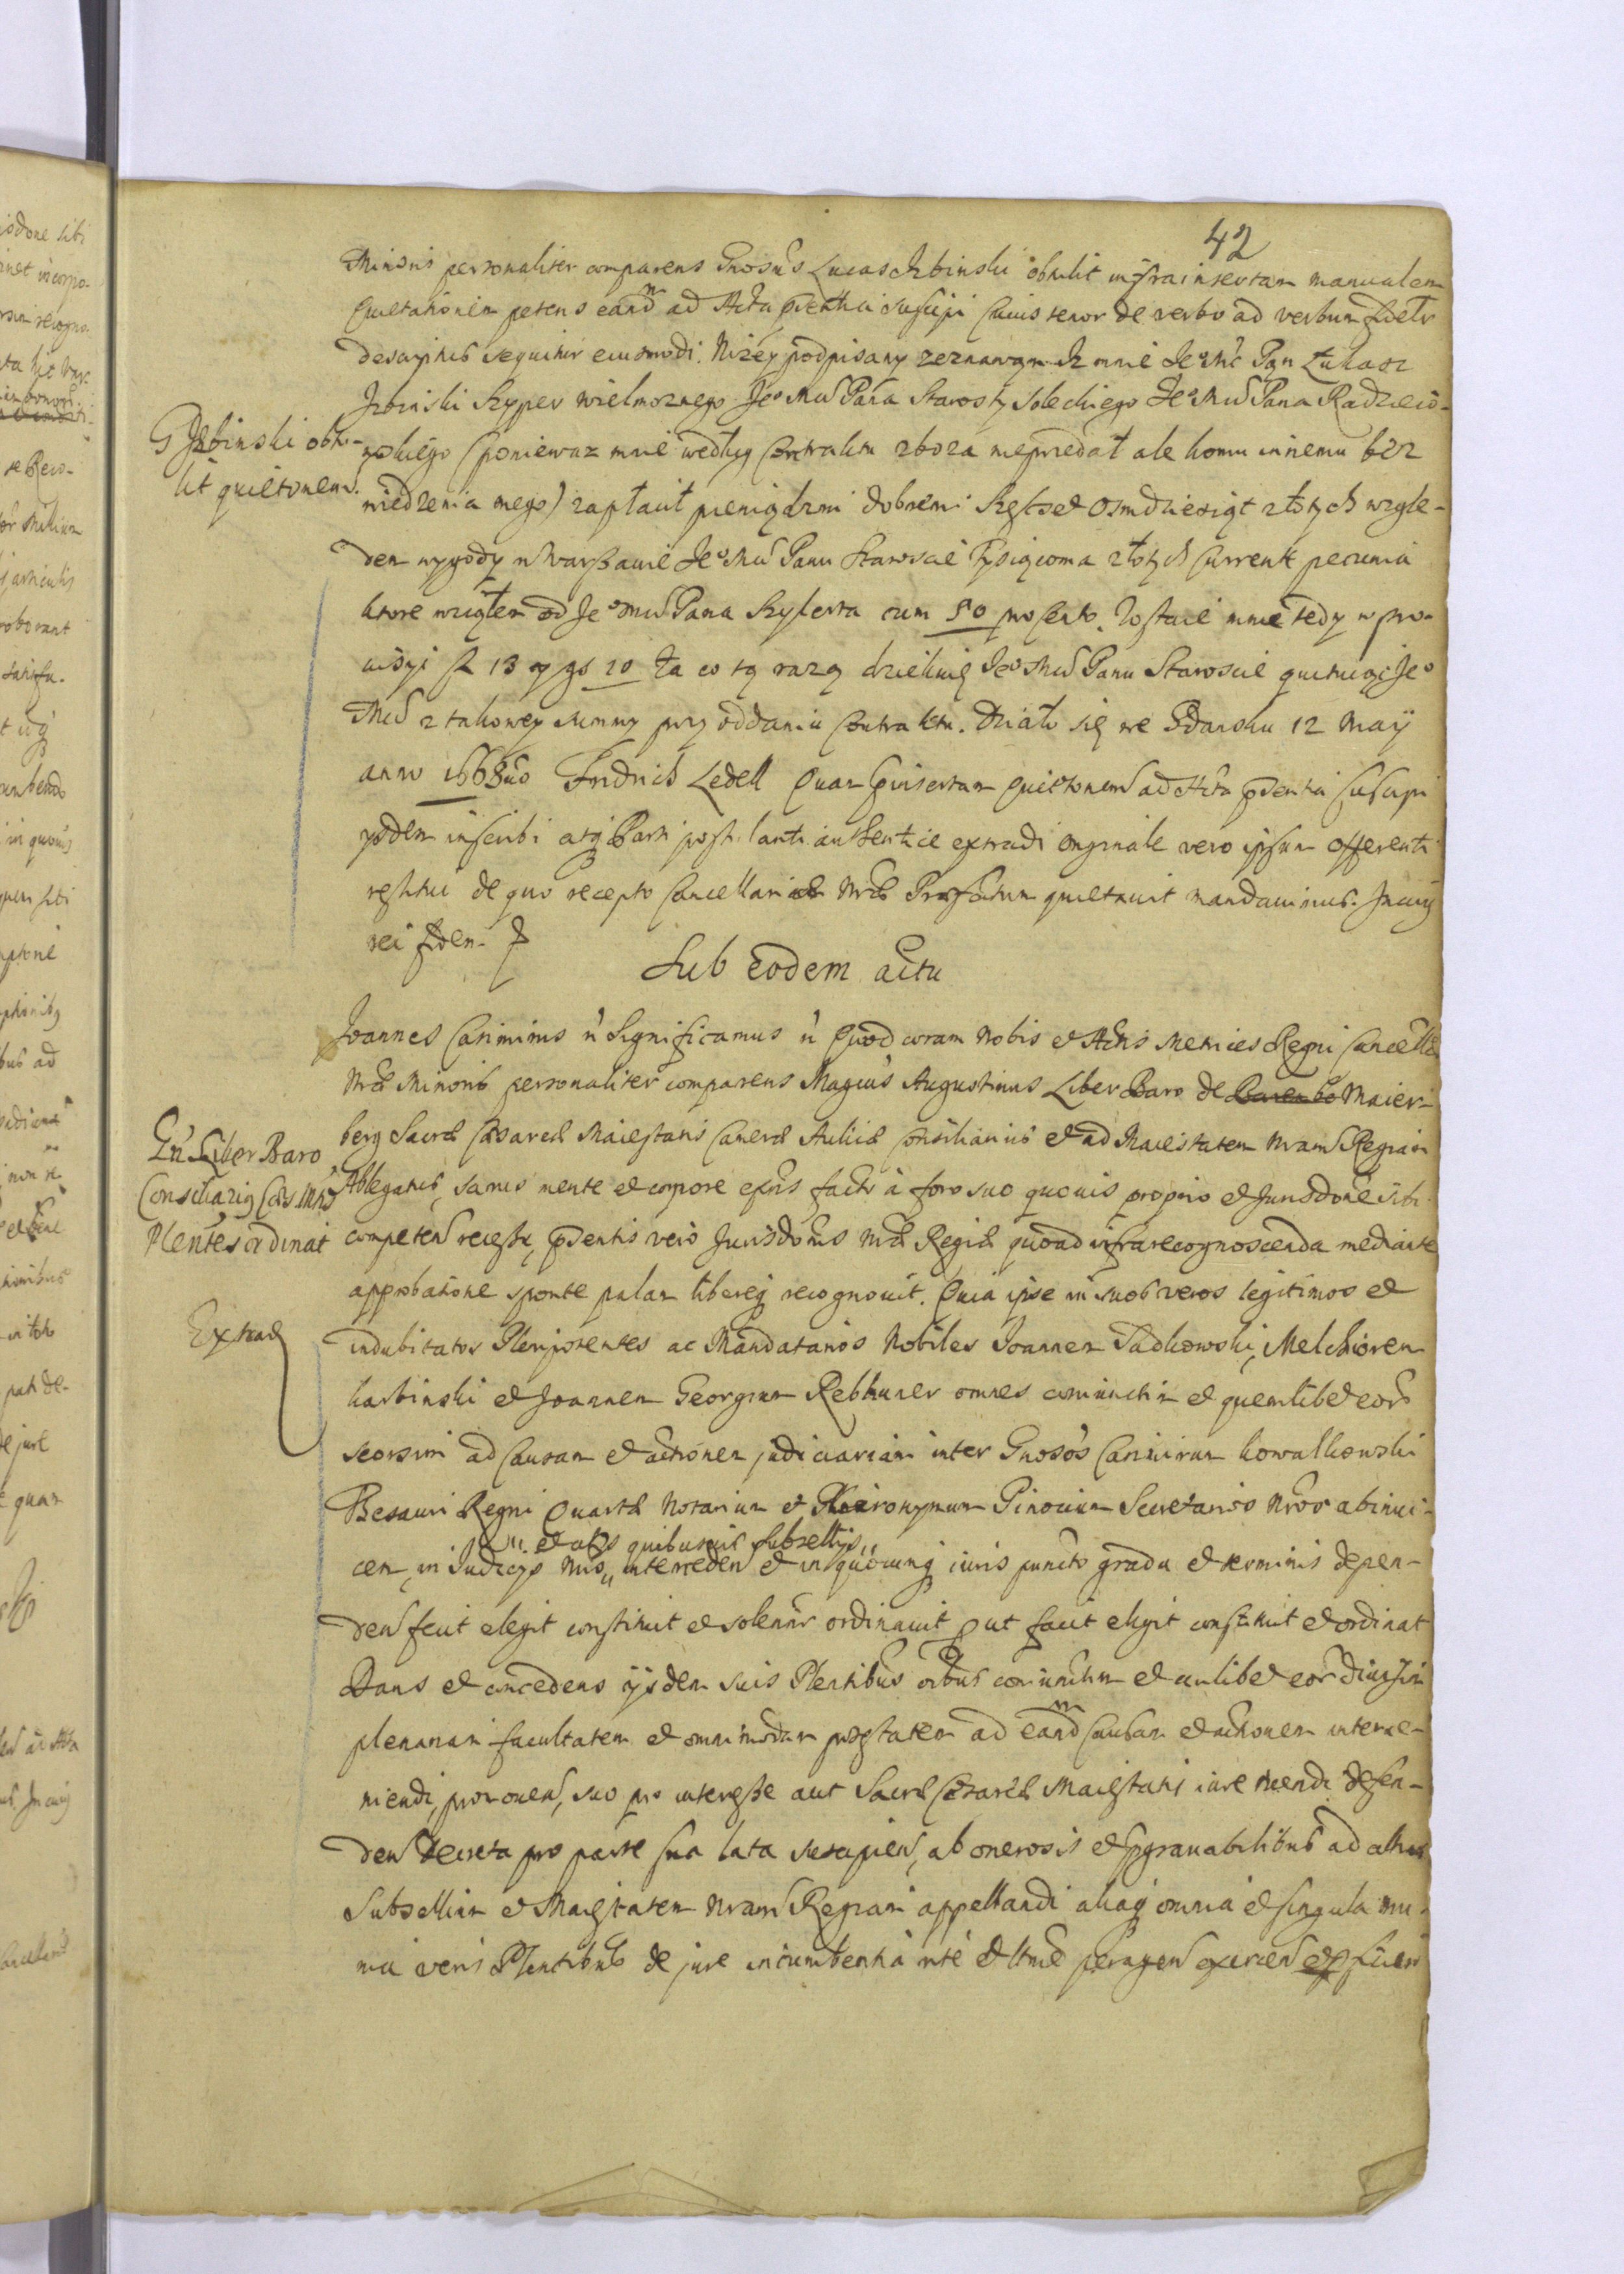 42
Minoris personaliter comparens Gnosus Lucas Jzbinski obtulit infrainsertam manualem
Quietationem petens eandm ad Acta pntia suscipi Cuius tenor de verbo ad verbum fidelr
descriptus sequitur eiusmodi. Niżey podpisany zeznawam Iz mnie Jeo Mć Pan Łukasz
Jzbinski Szyper wielmoznego Jeo Mci Pana Starosty Soleckiego Jeo Mci Pana Radzieio-
wskiego (poniewaz mnie według Contraktu zboza nieprzedał ale komu innemu bez
wiedzenia mego) zapłacił pieniądzmi dobremi Szescset Osmdziesiąt złotych wzglę-
dem wygody w Warszawie Jeo Mci Panu Staroscie Tysiącoma złotych Current pecunia
ktore wziąłem od Jeo Mci Pana Szylerta cum 50 pro Cento. Zostaie mnie tedy w pro-
wisyi fl 13 y gs 10 Za co tą razą dziekuię Jeo Mci Panu Staroscie quituiąc Jeo
Mci z takowey summy przy oddaniu Contraktu. Działo się we Gdansku 12 Maij
anno 1668uo Fridrich Ledell Quam pinsertam Quietonem ad Acta pntia suscipi
ysdem inscribi atq Parti postulanti authentice extradi originale vero ipsum offerenti
restitui de quo recepto Cancellariam nram Prafatum quietauit mandauimus. Jn cuiq
rei fidem
Sub eodem actu
G Jzbinski obtu-
lit quietonem.
Joannes Casimirus Significamus Quod coram Nobis et Actis Metrices Regni Cancellae
nrae Minoris personaliter comparens Magcus Augustinus Liber Baro de Maier-
berg Sacrae Caesareae Maiestatis Camerae Aulicae Consiliarius et ad Maiestatem nram Regiam
Ablegatus, sanus mente et corpore exns facto à foro suo quouis proprio et Jurisdone sibi
competen recessu, pntis vero Jurisdonis nrae Regiae quoad infrarecognoscenda mediante
approbatione sponte palam libereq recognouit. Quia ipse in suos veros legitimos et
indubitatos Plenipotentes ac Mandatarios Nobiles Joannem Sadkowski, Melchiorem
karbinski et Joannem Georgium Rebhuner omnes coniunctim et quemlibet eor
seorsim ad Causam et actionem judiciariam inter Gnosos Casimirum kowalkowski
Thesauri Regni Quartae Notarium et Hieronymum Pinocium Secretarios Nros abinui-
cem, in Judicijs nris, et alijs quibusuis subsellijs intercedem et in quocunq iuris puncto gradu et termino depen-
den fecit elegit constituit et solennr ordinauit put facit eligit constituit et ordinat
Dans et concedens ijsdem suis Plentibus oibus coniunctim et cuilibet eor diuisim
plenariam facultatem et omnimodam potestatem ad eandm Causam et actionem interue-
niendi, promouen, suo pro interesse aut Sacrae Caesareae Maiestatis iure tuendi defen-
den Decreta pro parte sua lata suscipien, ab onerosis et pgrauabilibus ad altius
Subsellium et Maiestatem nram Regiam appellandi aliaq omnia et singula mu-
nia veris Plentibus de jure incumbentia rite et ltime peragen exercen
Liber Baro
Consiliarius Caes Mtis
Plentes ordinat
Extrad